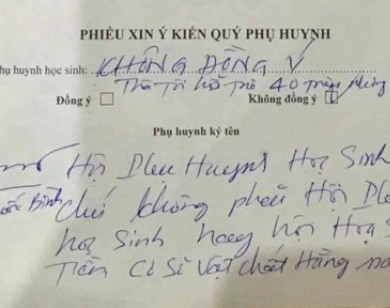 PHIẾU XIN Ý KIẾN QUÝ PHỤ HUYNH
phụ huynh học sinh: KHÔNG ĐỒNG Ý
Thì Tôi hỗ Trợ 40 Triệu
Đồng ý Không đồng ý
Phụ huynh ký tên
Hội Phụ Huynh Học Sinh
chứ không phải Hội
học Sinh hay hội
Tiền Cơ Sở Vật chất Hằng